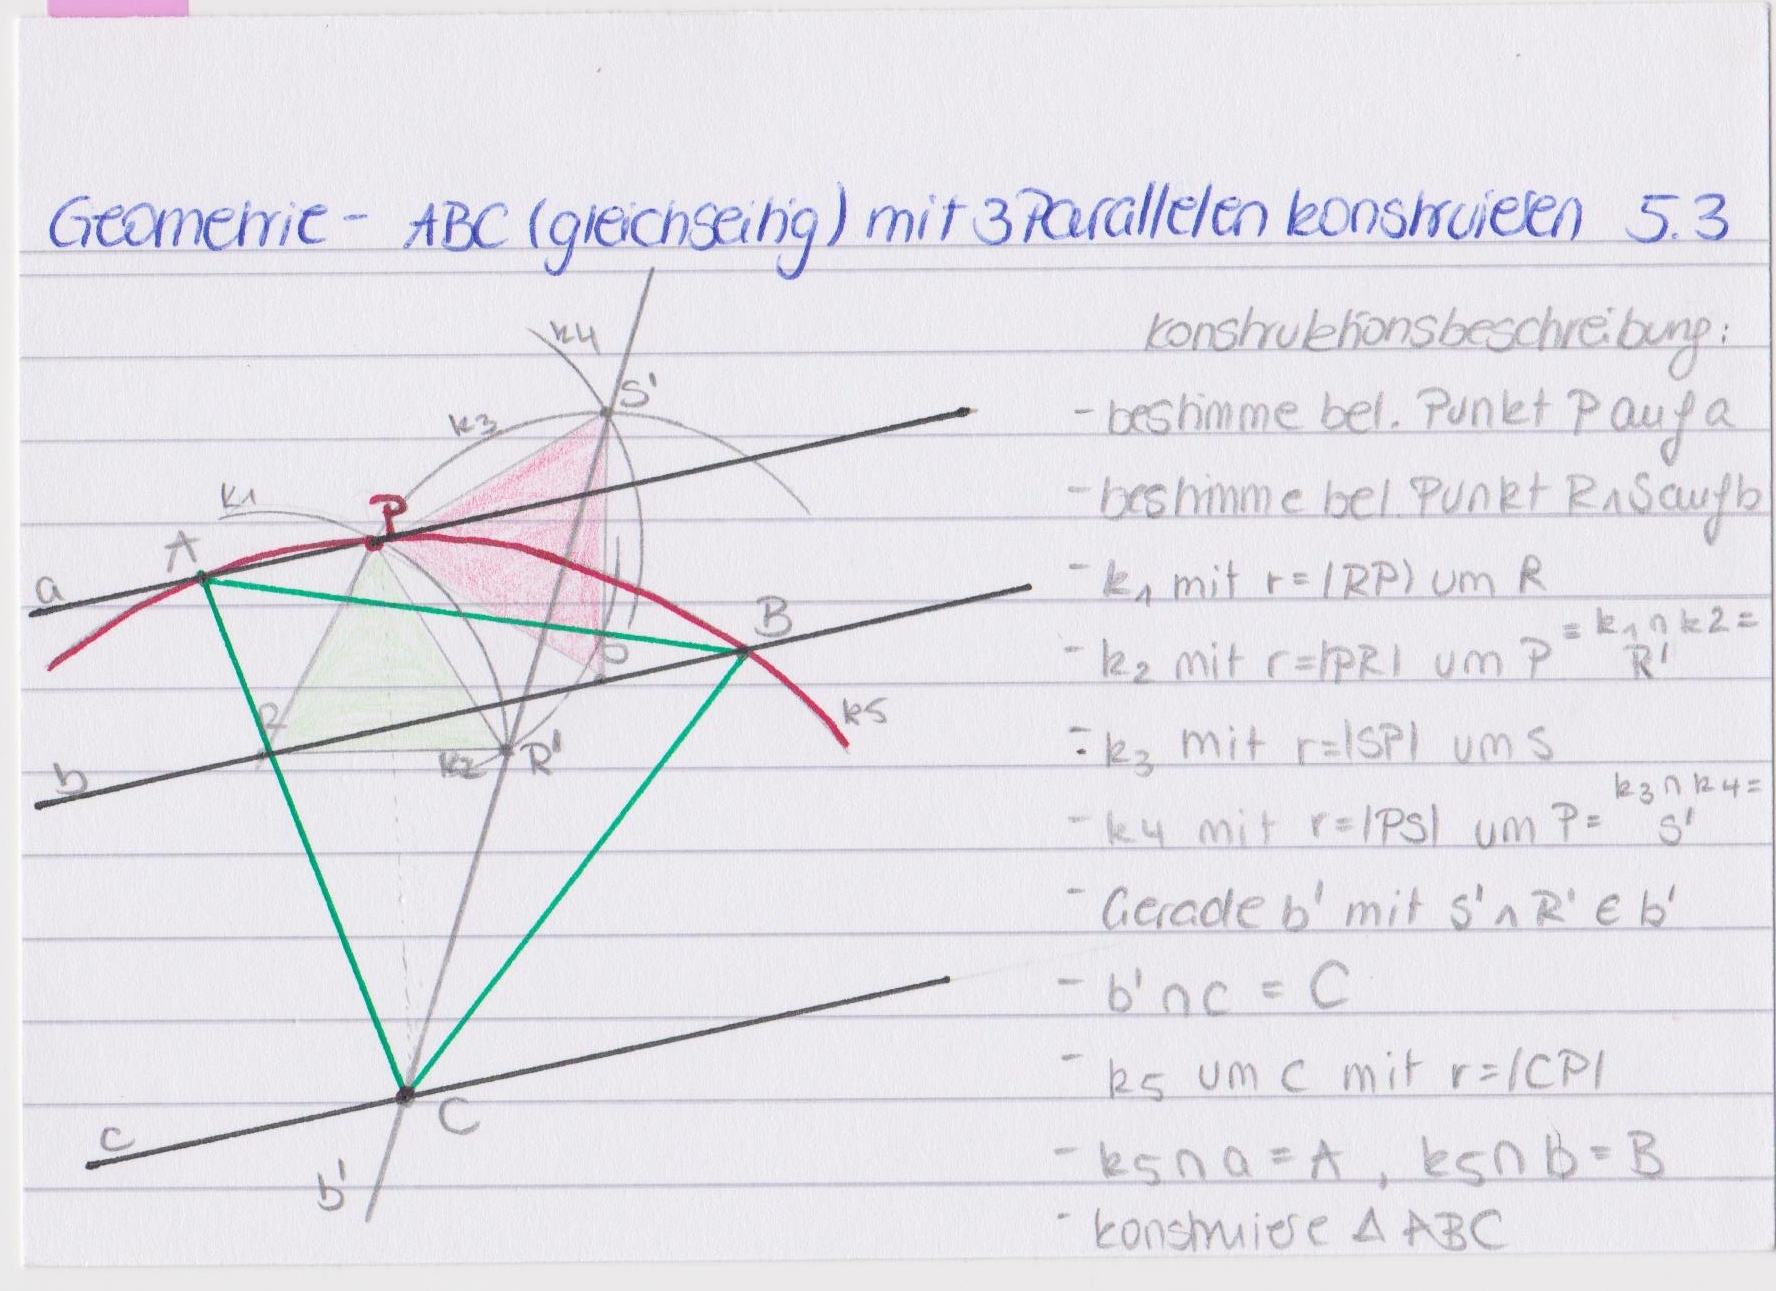 Geometrie - ABC (gleichseitig) mit 3 Parallelen konstruieren 5.3
Konstruktionsbeschreibung:
- bestimme bel. Punkt P auf a
- bestimme bel. Punkt R ∧ S auf b
- k1 mit r=|RP| um R
- k2 mit r=|PR| um P = k1 ∩ k2 = R'
- k3 mit r=|SP| um S
- k4 mit r=|PS| um P = k3 ∩ k4 = S'
- Gerade b' mit S' ∧ R' ∈ b'
- b' ∩ c = C
- k5 um C mit r=|CP|
- k5 ∩ a = A , k5 ∩ b = B
- konstruiere Δ ABC
k4
S'
k3
k1
P
A
a
B
S
k5
R
k2
R'
b
C
c
b'